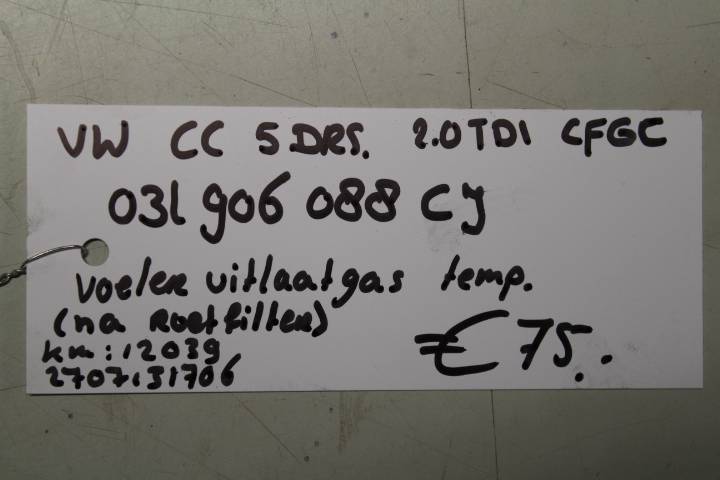 VW CC 5DRS. 2.0TDI CFGC
03L 906 088 CJ
voeler uitlaatgas temp.
(na roetfilter)
€75.
km:12039
2707131706